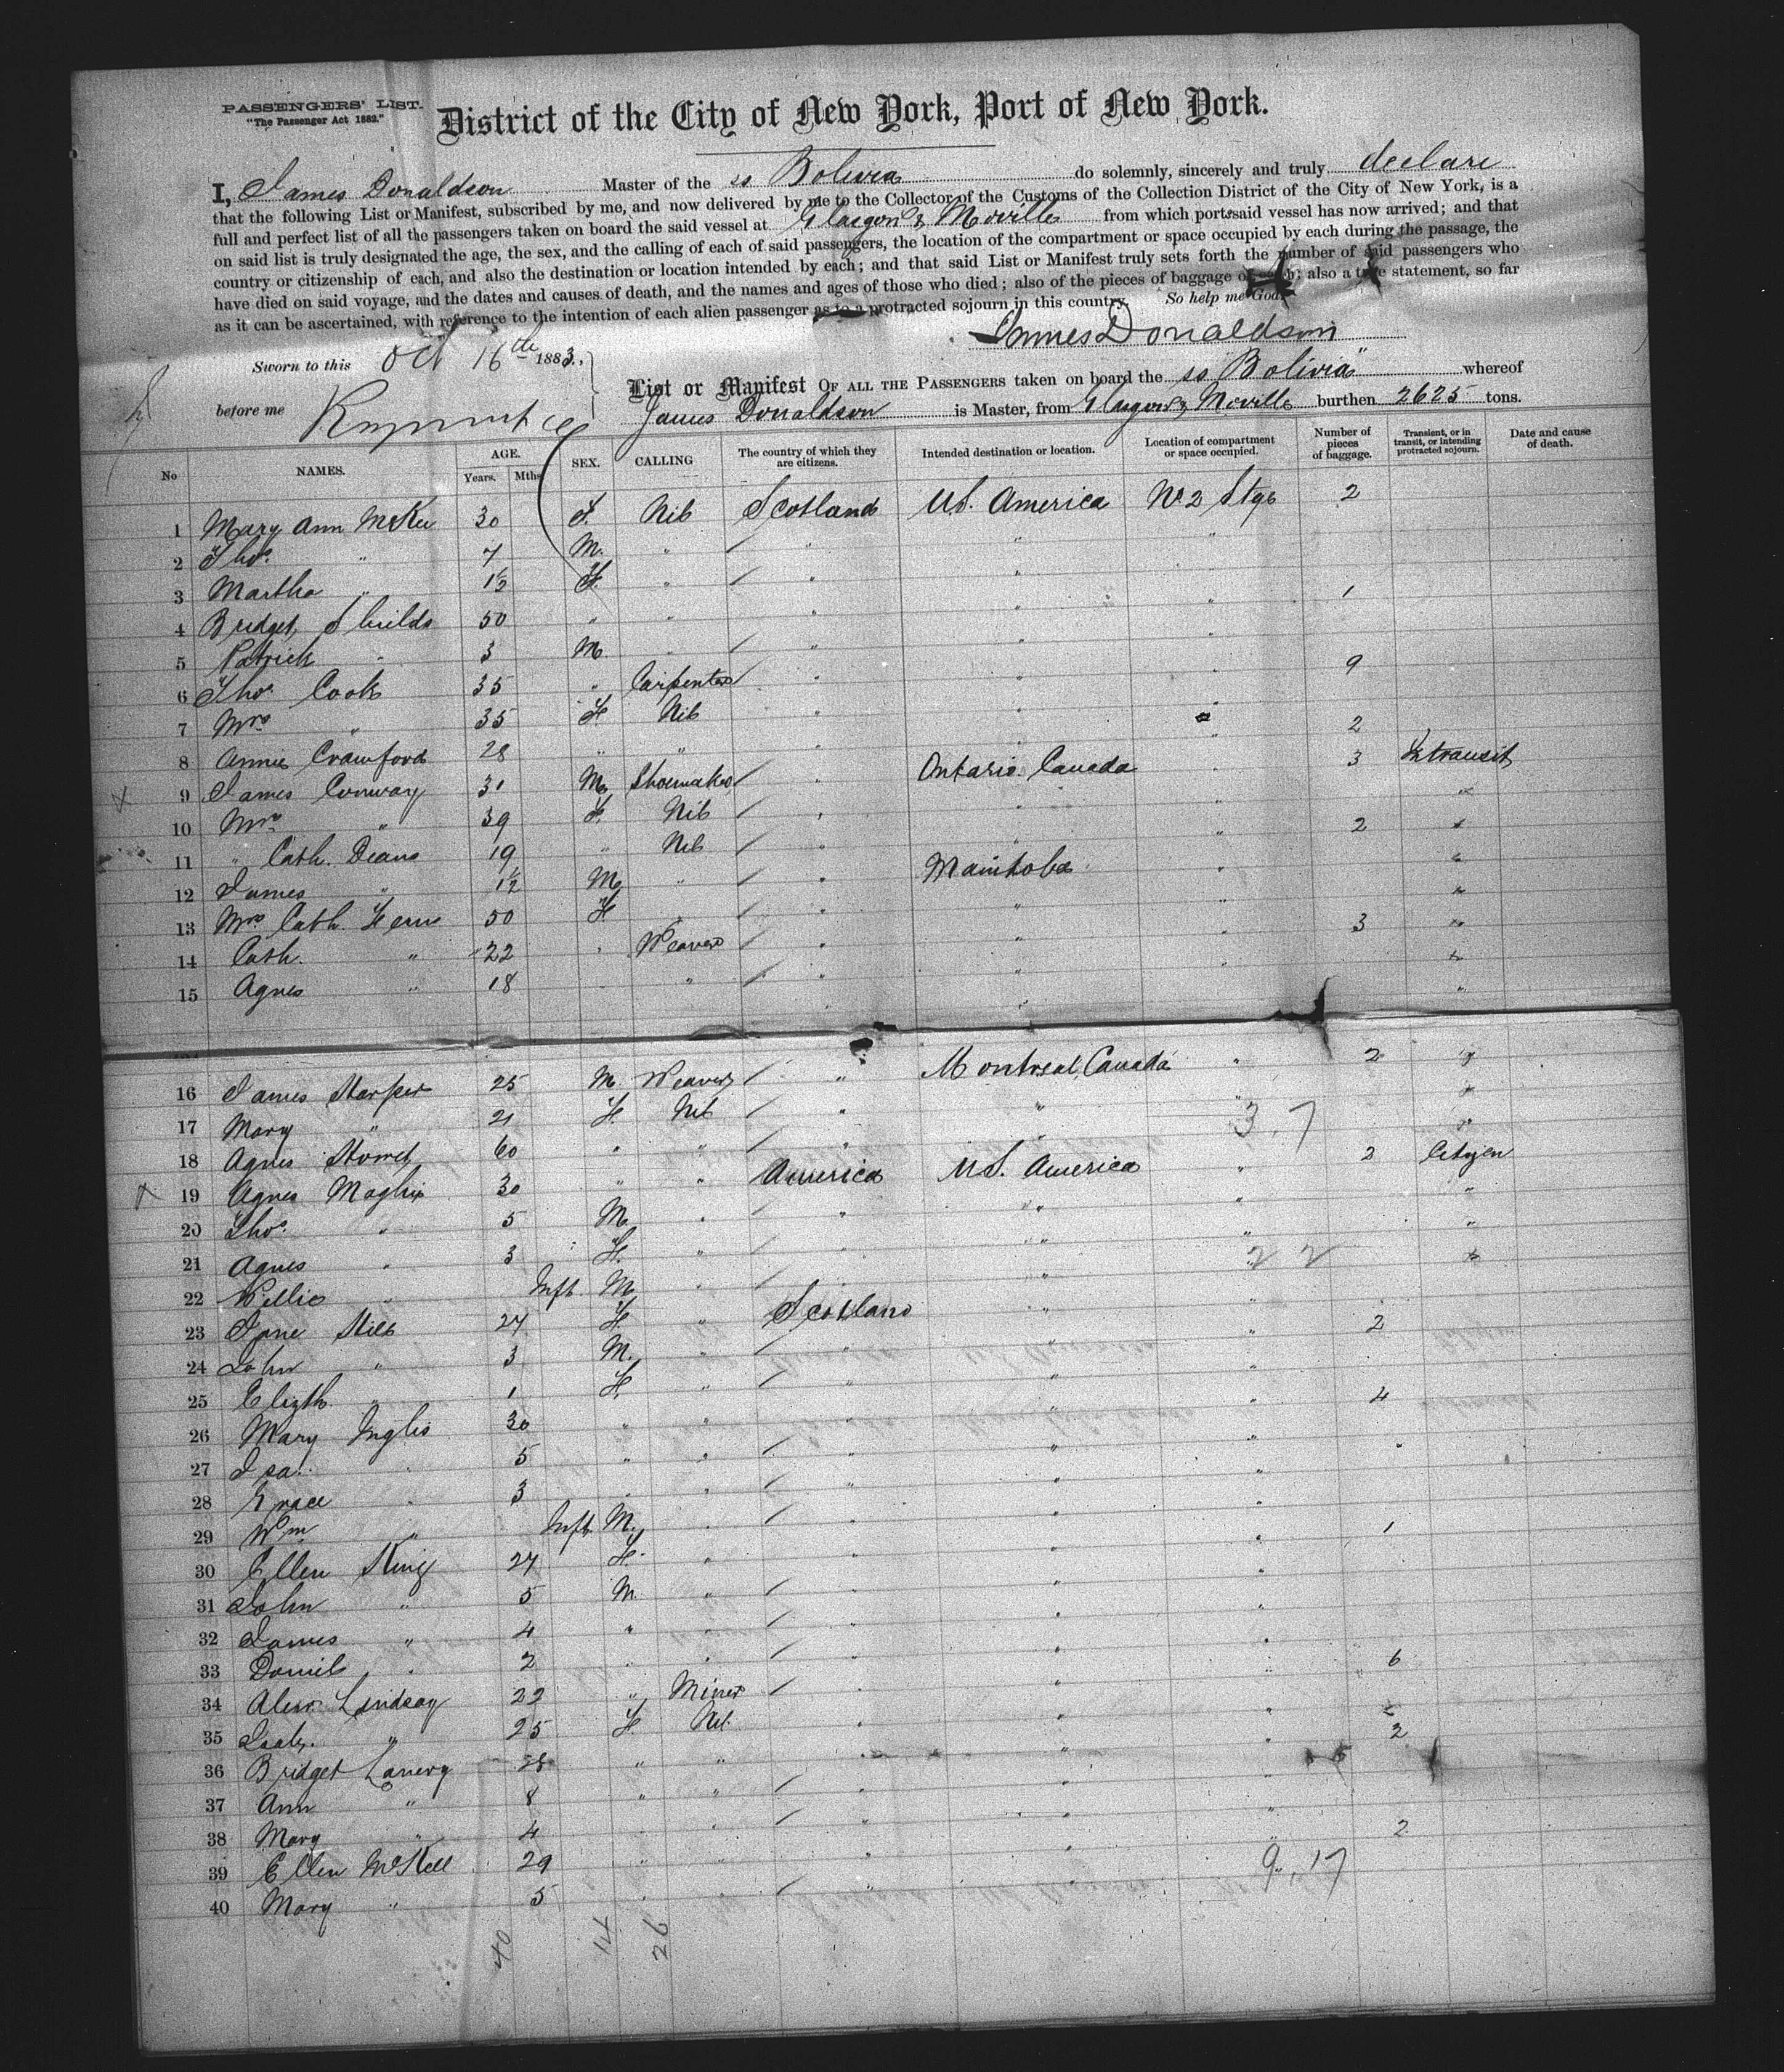 PASSENGERS' LIST.
"The Passenger Act 1882."
District of the City of New York, Port of New York.
I, James Donaldson Master of the ss Bolivia do solemnly, sincerely and truly declare
that the following List or Manifest, subscribed by me, and now delivered by me to the Collector of the Customs of the Collection District of the City of New York, is a
full and perfect list of all the passengers taken on board the said vessel at Glasgow & Moville from which port said vessel has now arrived; and that
on said list is truly designated the age, the sex, and the calling of each of said passengers, the location of the compartment or space occupied by each during the passage, the
country or citizenship of each, and also the destination or location intended by each; and that said List or Manifest truly sets forth the number of said passengers who
have died on said voyage, and the dates and causes of death, and the names and ages of those who died; also of the pieces of baggage of each; also a true statement, so far
as it can be ascertained, with reference to the intention of each alien passenger as to a protracted sojourn in this country. So help me God.
James Donaldson
Sworn to this Oct 16th 1883,
before me
List or Manifest OF ALL THE PASSENGERS taken on board the ss Bolivia" whereof
James Donaldson is Master, from Glasgow & Moville burthen 2625 tons.
No NAMES. AGE. Years. Mths SEX. CALLING The country of which they are citizens. Intended destination or location. Location of compartment or space occupied. Number of pieces of baggage. Transient, or in transit, or intending protracted sojourn. Date and cause of death.
1 Mary Ann McKee 30 F. Nil Scotland U.S. America No 2 Stge 2
2 Thos. " 7 M. " / " " "
3 Martha " 1½ F. " / " " "
4 Bridget Shields 50 " " " " " 1
5 Patrick " 3 M " / " " "
6 Thos Cook 35 " Carpenter / " " " 9
7 Mrs " 35 F Nil " " "
8 Annie Crawford 28 " " " " " 2
9 James Conway 31 M Shoemaker / " Ontario Canada " 3 In transit
10 Mrs " 39 F. Nil / " " " "
11 " Cath. Deans 19 " Nil / " " " 2 "
12 James " 1½ M " / " Manitoba " "
13 Mrs Cath. Fern 50 F " / " " " "
14 Cath. " 22 " Weaver / " " " 3 "
15 Agnes " 18 " " / " " " "
16 James Harper 25 M. Weaver / " Montreal, Canada " 2 "
17 Mary " 21 F. Nil / " " " "
3.7
18 Agnes 60 " " / " " " "
19 Agnes 30 " " America U.S. America " 2 Citizen
20 Thos. " 5 M " / " " " "
21 Agnes " 3 F. " / " " " "
22
22 Willie " Inft. M " / " " "
23 Jane 27 F. " Scotland " " 2
24 John " 3 M. " / " " "
25 Elizth. " 1 F. " / " " "
26 Mary Inglis 30 " " " " " 4
27 Isa. " 5 " " / " " "
28 Grace " 3 " " / " " "
29 Wm " Inft. M. " / " " "
30 Ellen King 27 F. " " " " 1
31 John " 5 M. " / " " "
32 James " 4 " " / " " "
33 Daniel " 2 " " / " " "
34 Alexr. Lindsay 22 " Miner / " " " 6
35 " 25 F Nil " " "
36 Bridget 28 " " " " " 2
37 Ann " 8 " " / " " "
38 Mary " 4 " " / " " "
39 Ellen 29 " " " " " 2
9.17
40 Mary " 5 " /
40 14 26